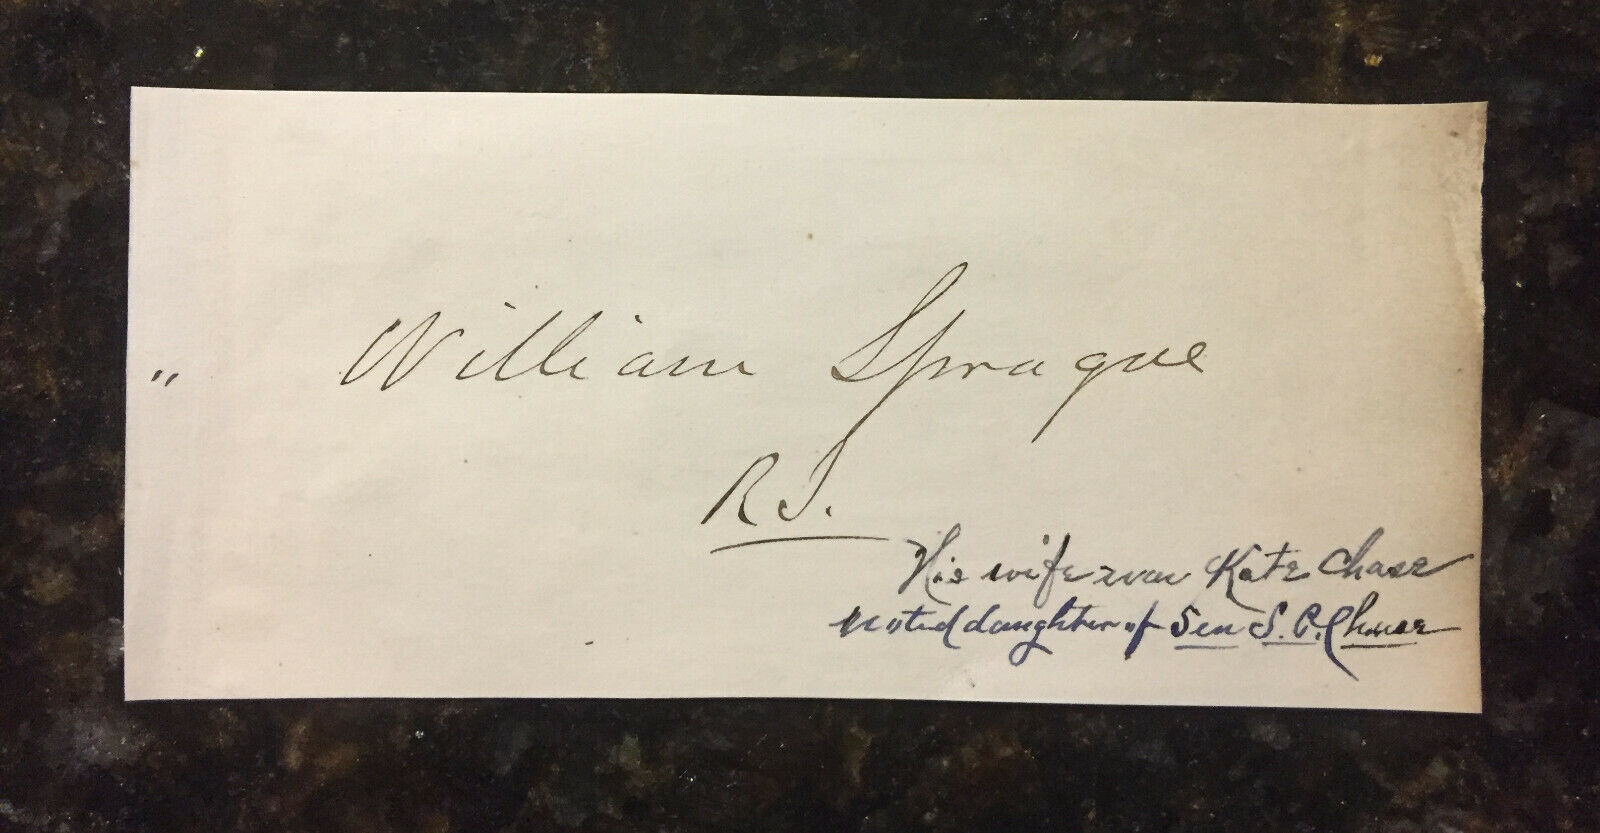 " William Sprague
R I.
His wife was Kate Chase
noted daughter of Sen S. P. Chase